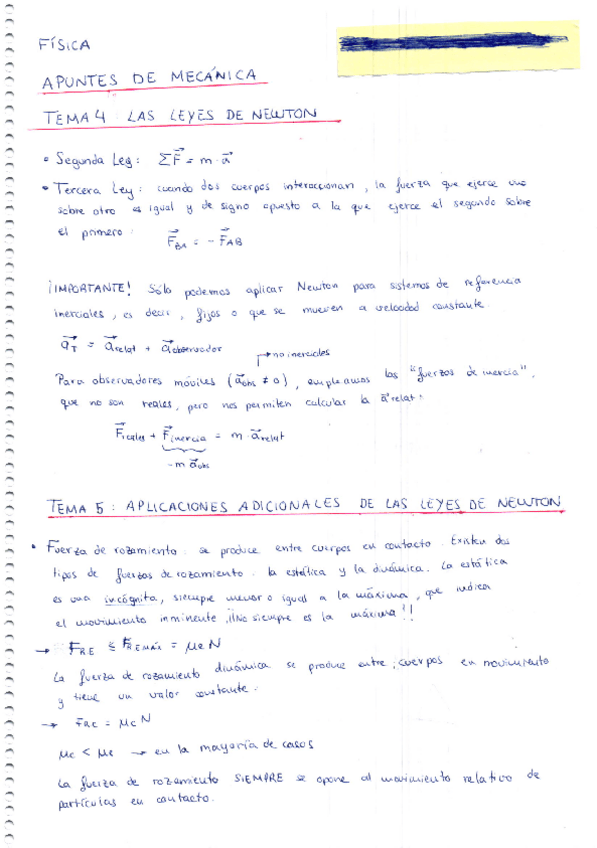 FÍSICA
APUNTES DE MECÁNICA
TEMA 4 : LAS LEYES DE NEWTON
• Segunda Ley : ΣF⃗ = m · a⃗
• Tercera Ley : cuando dos cuerpos interaccionan , la fuerza que ejerce uno
sobre otro es igual y de signo opuesto a la que ejerce el segundo sobre
el primero :
F⃗BA = - F⃗AB
¡IMPORTANTE! Sólo podemos aplicar Newton para sistemas de referencia
inerciales , es decir , fijos o que se mueven a velocidad constante .
a⃗T = a⃗relat + a⃗observador
→ no inerciales
Para observadores móviles ( a⃗obs ≠ 0 ) , empleamos las "fuerzas de inercia" ,
que no son reales , pero nos permiten calcular la a⃗relat :
F⃗reales + F⃗inercia = m · a⃗relat
- m a⃗obs
TEMA 5 : APLICACIONES ADICIONALES DE LAS LEYES DE NEWTON
• Fuerza de rozamiento : se produce entre cuerpos en contacto . Existen dos
tipos de fuerzas de rozamiento : la estática y la dinámica . La estática
es una incógnita , siempre menor o igual a la máxima , que indica
el movimiento inminente . ¡¡No siempre es la máxima!!
→ FRE ≤ FREMÁX = μe N
La fuerza de rozamiento dinámica se produce entre cuerpos en movimiento
y tiene un valor constante :
→ FRC = μc N
μc < μe → en la mayoría de casos
La fuerza de rozamiento SIEMPRE se opone al movimiento relativo de
partículas en contacto .